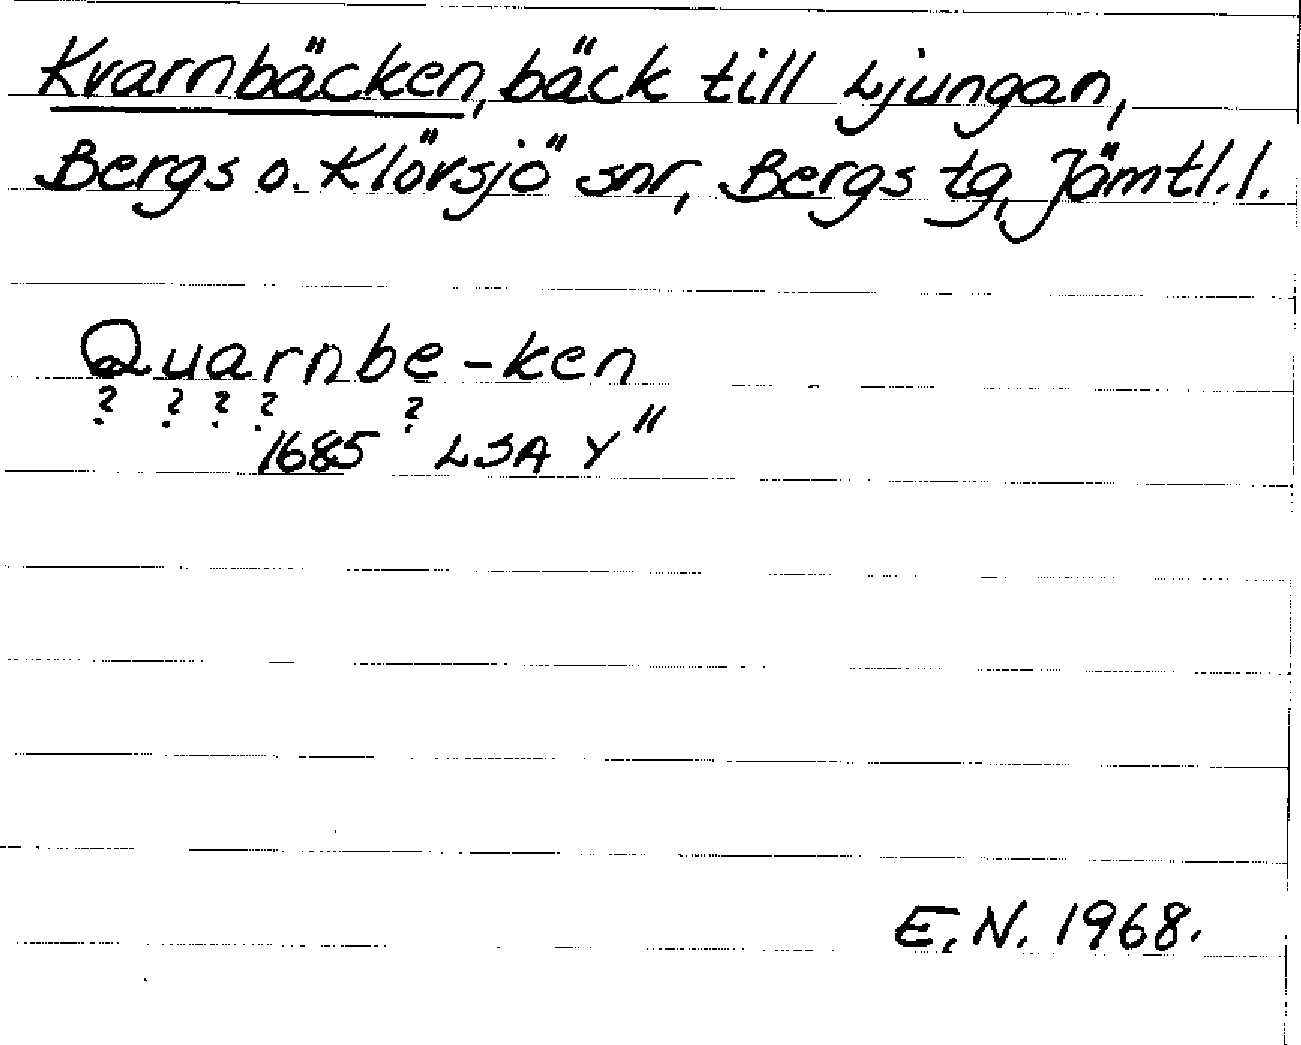 Kvarnbäcken, bäck till Ljungan,
Bergs o. Klövsjö snr, Bergs tg, Jämtl. l.
Quarnbe-ken
? ? ? ? ?
1685 LSA Y"
E. N. 1968.